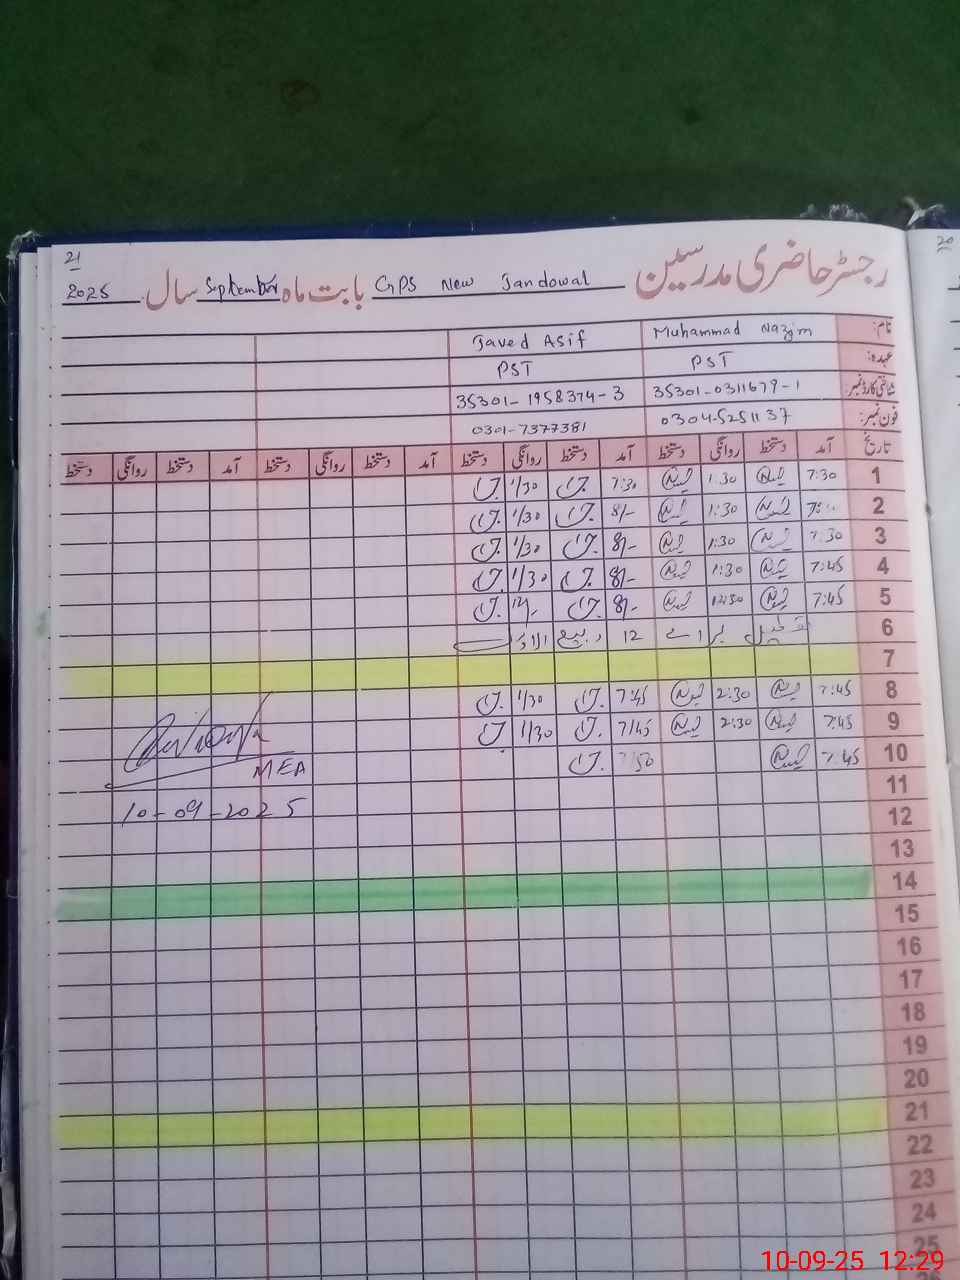 21
20
رجسٹر حاضری مدرسین GPS New Jandowal بابت ماہ September سال 2025
نام: Muhammad Nazim Javed Asif
عہدہ: PST PST
شناختی کارڈ نمبر: 35301-0311679-1 35301-1958374-3
فون نمبر: 0304-5251137 0301-7377381
تاریخ آمد دستخط روانگی دستخط آمد دستخط روانگی دستخط آمد دستخط روانگی دستخط آمد دستخط روانگی دستخط
1 7:30 1:30 7:30 1/30
2 1:30 8/- 1/30
3 7:30 1:30 8/- 1/30
4 7:45 1:30 8/- 1/30
5 7:45 12:30 8/- 12/-
6 تعطیل برائے 12 ربیع الاول
7
8 7:45 2:30 7:45 1/30
9 7:45 2:30 7/45 1/30
10 7:45 7/50
MEA
10-09-2025
11
12
13
14
15
16
17
18
19
20
21
22
23
24
25
10-09-25 12:29